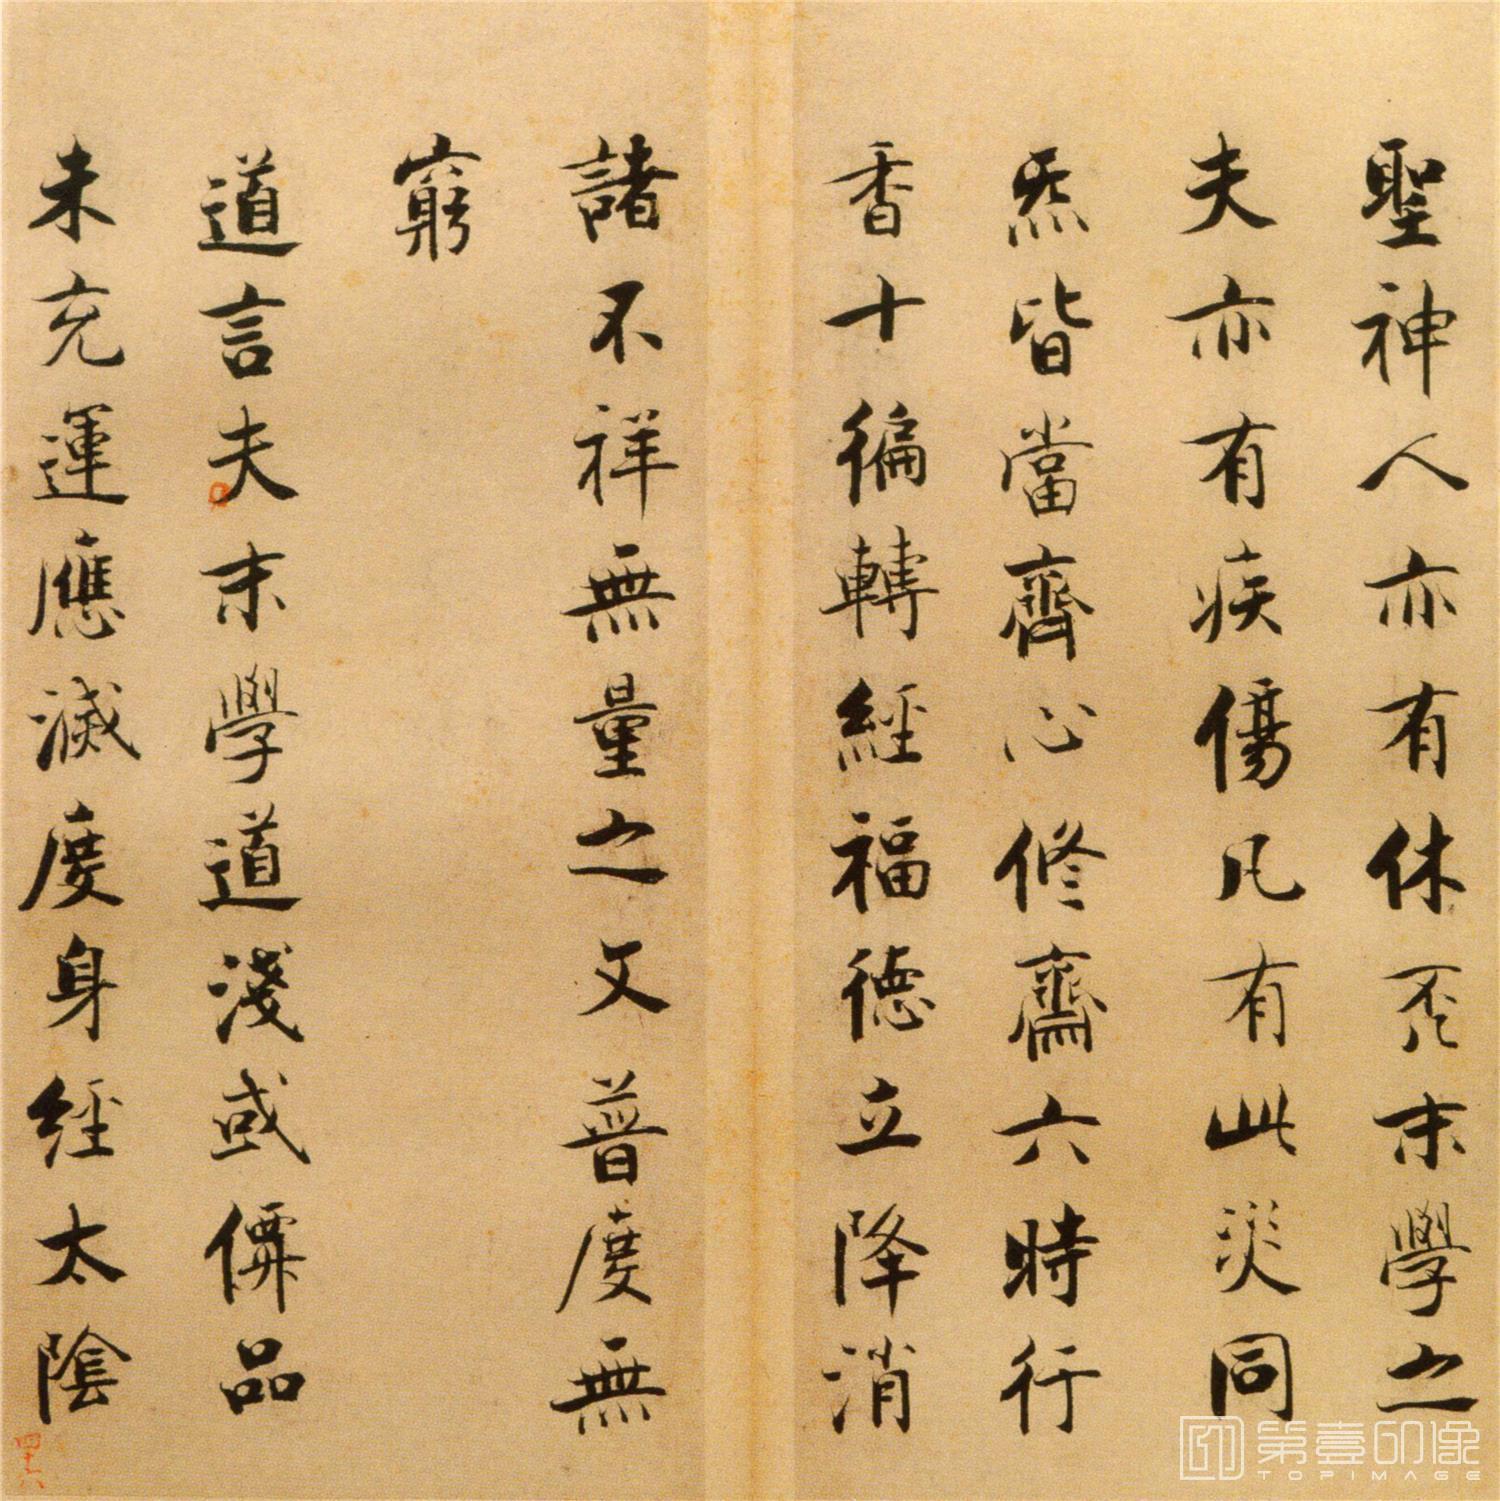 聖神人亦有休否末學之
夫亦有疾傷凡有此災同
炁皆當齊心修齋六時行
香十徧轉經福德立降消
諸不祥無量之文普度無
窮
道言夫末學道淺或僊品
未充運應滅度身經太陰
四十六
第壹印像
TOPIMAGE